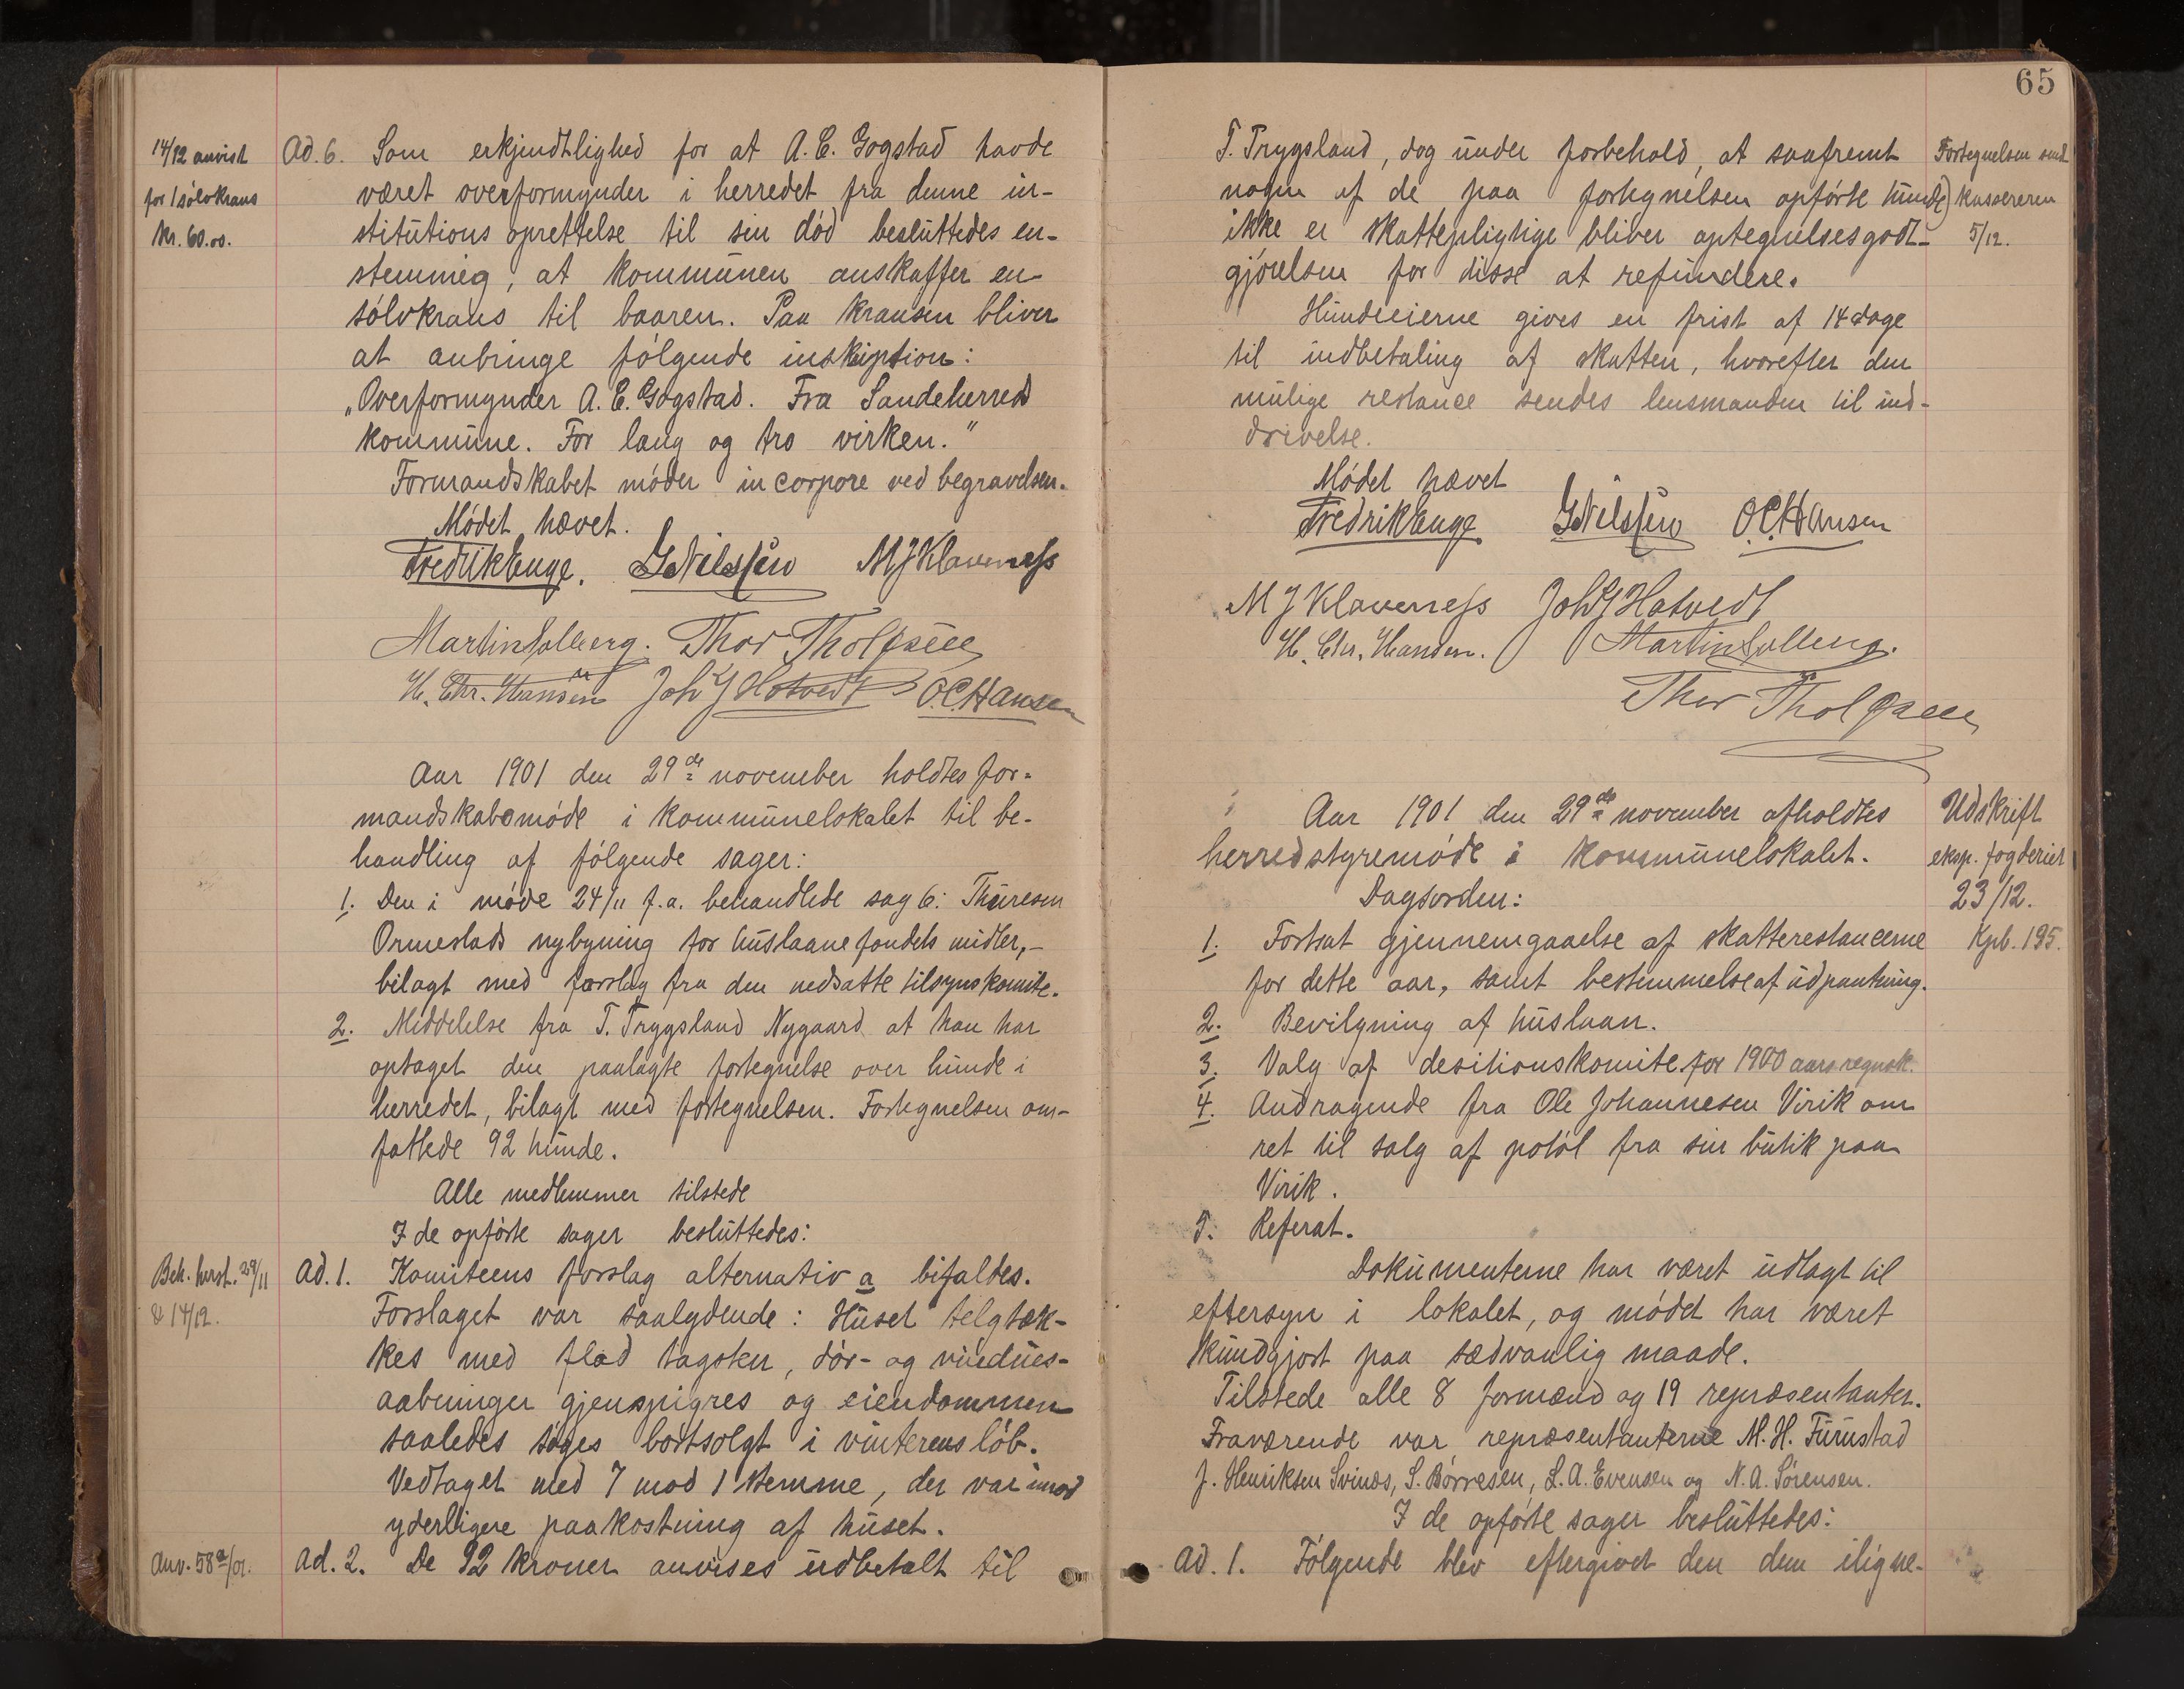 14/12 anvist
for 1 sølvkrans
Kr. 60.00.
Ad. 6. Som erkjendtlighed for at A. E. Gogstad havde
været overformynder i herredet fra denne in-
stitutions oprettelse til sin død besluttedes en-
stemmig, at kommunen anskaffer en
sølvkrans til baaren. Paa kransen bliver
at anbringe følgende inskiption:
„Overformynder A. E. Gogstad. Fra Sandeherreds
kommune. For lang og tro virken."
Formandskabet møder in corpore ved begravelsen.
Mødet hævet.
Fredrik Enge. G Nilssen M J Klaveness
Martin Solberg. Thor Tholfsen
H. Chr. Hansen Joh J Hotvedt O. C. Hansen
Aar 1901 den 29de november holdtes for-
mandskabsmøde i kommunelokalet til be-
handling af følgende sager:
1. Den i møde 24/11 f. a. behandlede sag 6: Thuresen
Ormestads nybyning for huslaanefondets midler,-
bilagt med forslag fra den nedsatte tilsynskomite.
2. Middelelse fra T. Trygsland Nygaard at han har
optaget den paalagte fortegnelse over hunde i
herredet, bilagt med fortegnelsen. Fortegnelsen om-
fattede 92 hunde.
Alle medlemmer tilstede
I de opførte sager besluttedes:
Bek. herst. 29/11
& 14/12.
Ad. 1. Komiteens forslag alternativ a bifaldes.
Forslaget var saalydende: Huset telgtæk-
kes med flad tagsten, dør- og vindues-
aabninger gjenspigres og eiendommen
saaledes søges bortsolgt i vinterens løb.
Vedtaget med 7 mod 1 stemme, der var imod
yderligere paakostning af huset.
Anv. 58a/01.
Ad. 2. De 92 kroner anvises udbetalt til
65
T. Trygsland, dog under forbehold, at saafremt
nogen af de paa fortegnelsen opførte hunde)
ikke er skattepligtige bliver optegnelsesgodt-
gjørelsen for disse at refundere.
Fortegnelsen sendt
kassereren
5/12.
Hundeeierne gives en frist af 14 dage
til indbetaling af skatten, hvorefter den
mulige restance sendes lensmanden til ind-
drivelse.
Mødet hævet
Fredrik Enge G Nilssen O. C. Hansen
M J Klaveness Joh J Hotvedt
H. Chr. Hansen. Martin Solberg.
Thor Tholfsen
Aar 1901 den 29de november afholdtes
herredstyremøde i kommunelokalet.
Dagsorden:
Udskrift
eksp. fogderiet
23/12.
Kpb. 195.
1. Fortsat gjennemgaaelse af skatterestancerne
for dette aar, samt bestemmelse af udpantning.
2. Bevilgning af huslaan.
3. Valg af desitionskomite for 1900 aars regnsk.
4. Andragende fra Ole Johannesen Virik om
ret til salg af potøl fra sin butik paa
Virik.
5. Referat.
Dokumenterne har været udlagt til
eftersyn i lokalet, og mødet har været
kundgjort paa sædvanlig maade.
Tilstede alle 8 formænd og 19 repræsentanter.
Fraværende var repræsentanterne M. H. Furustad
J. Henriksen Svinøs, S. Børresen, L. A. Evensen og N. A. Sørensen.
I de opførte sager besluttedes:
Ad. 1. Følgende blev eftergivet den dem iligne-